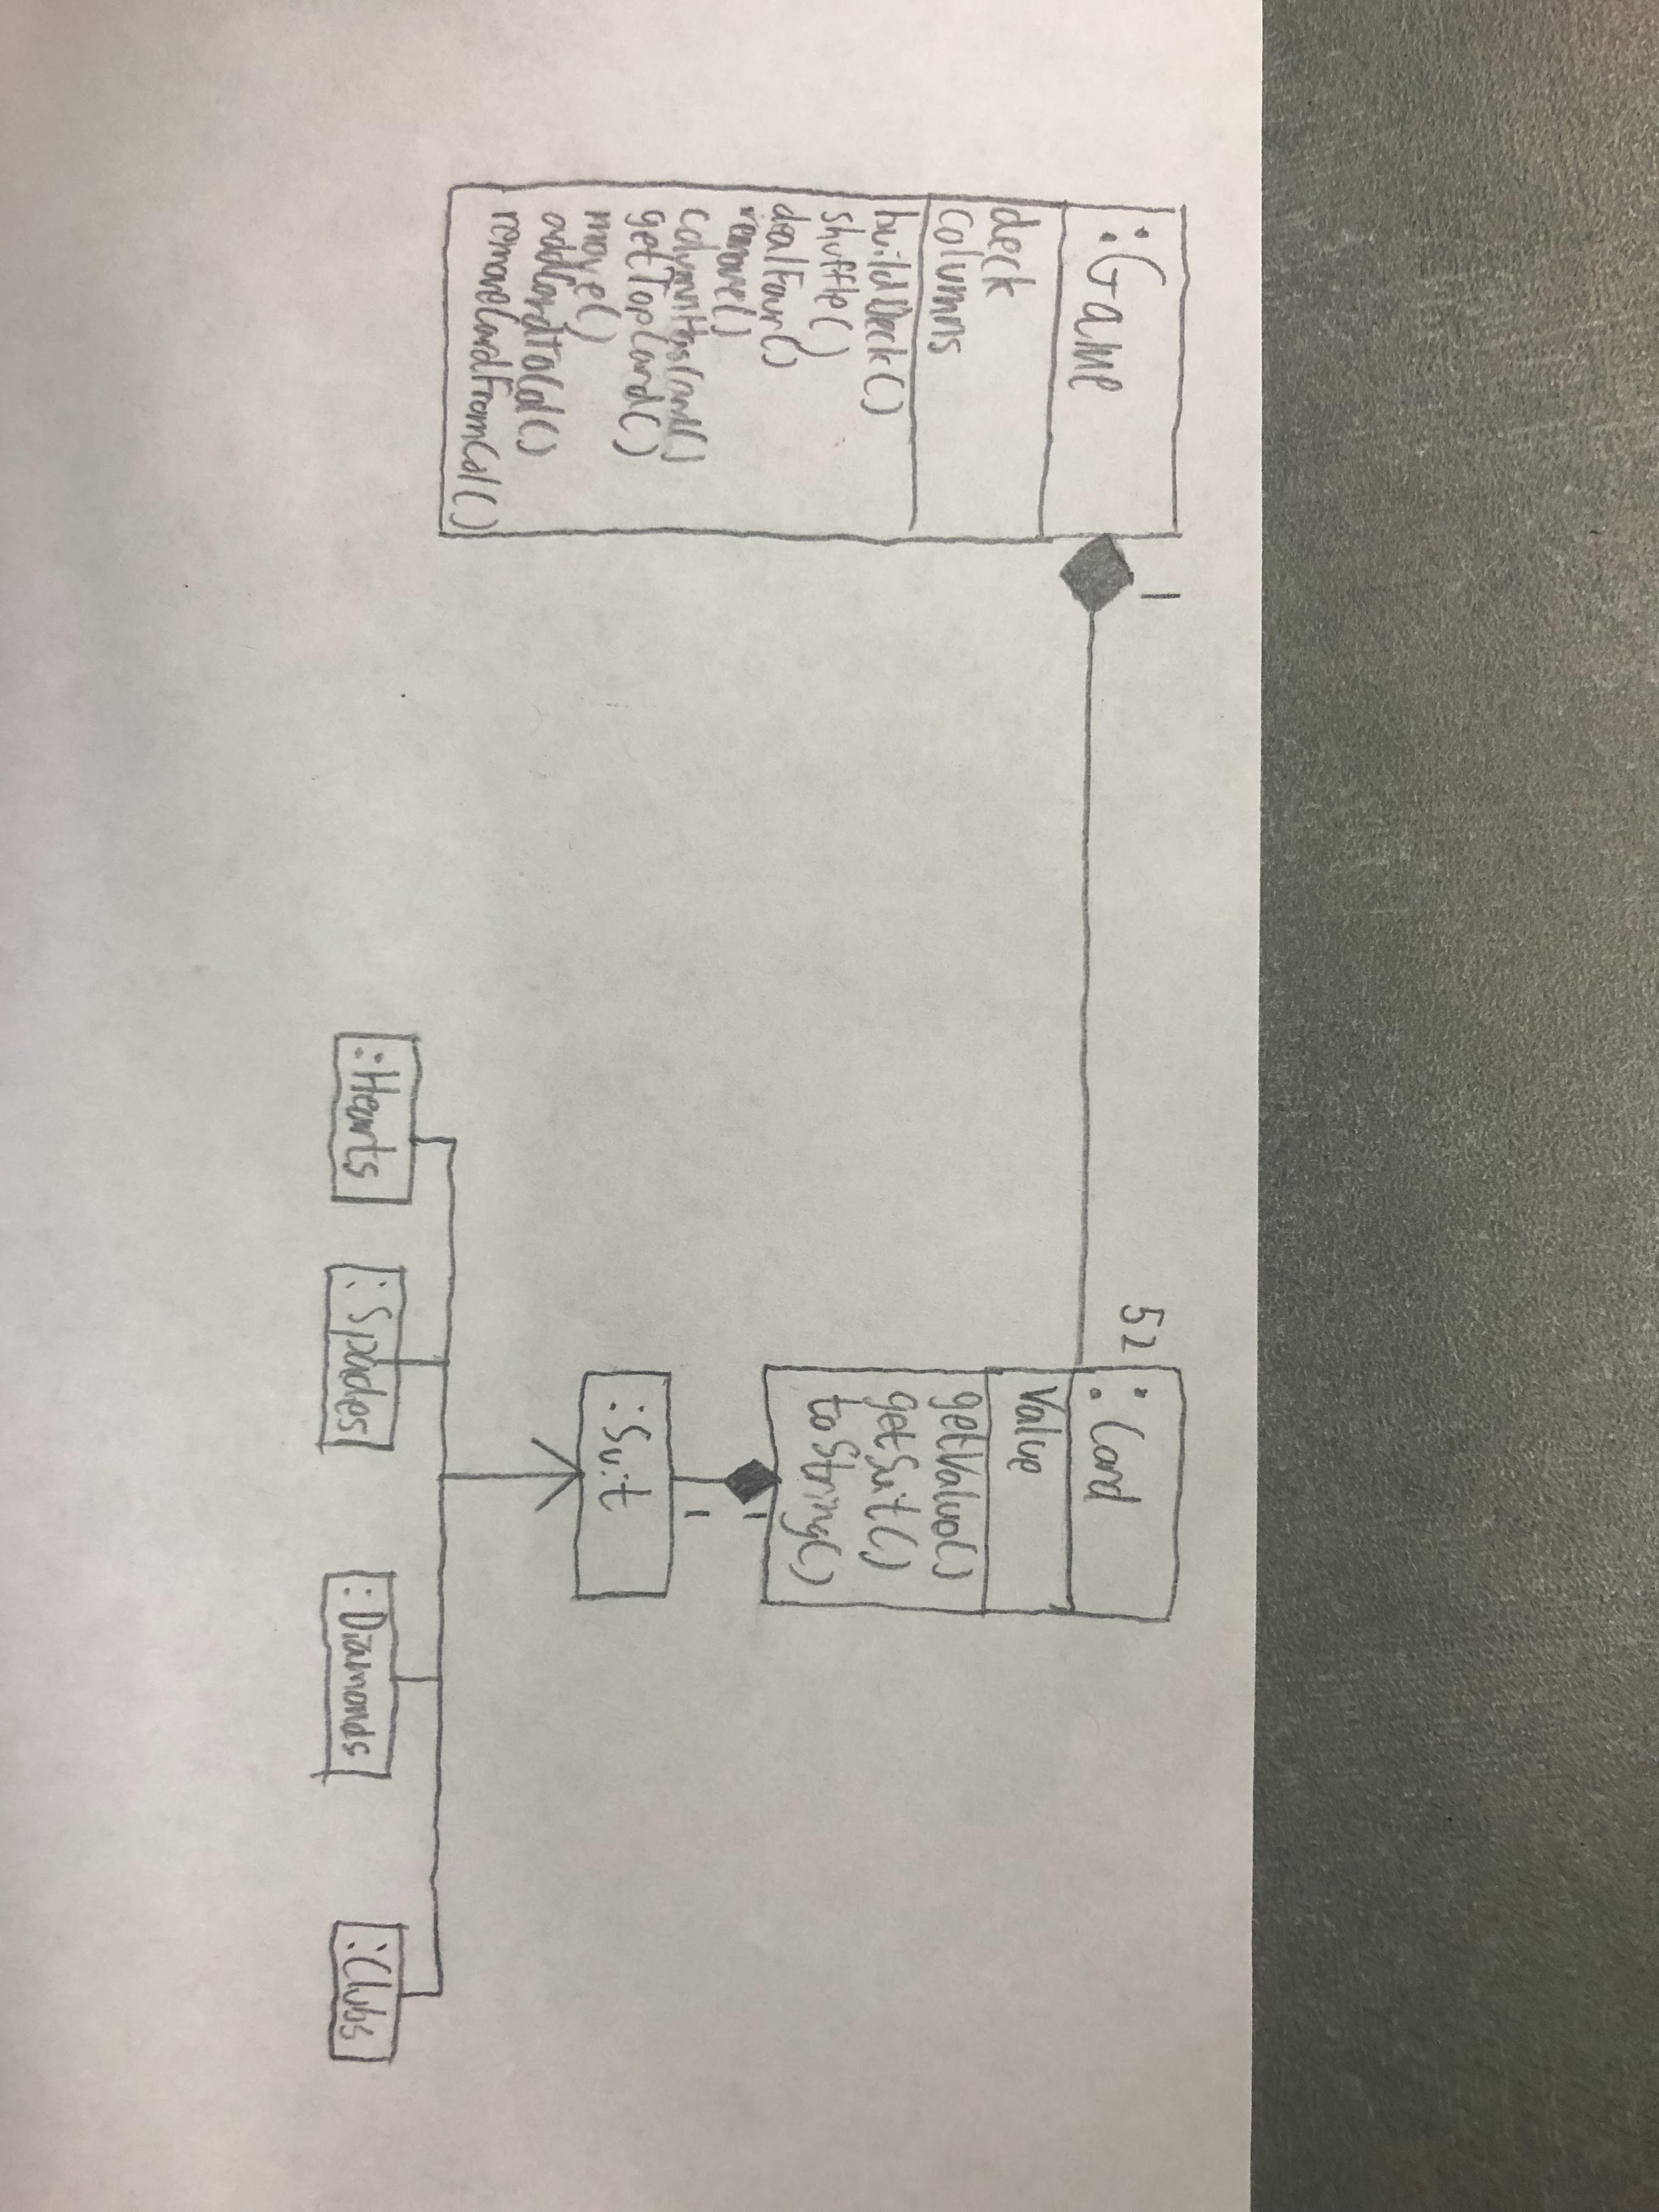 :Game
deck
columns
buildDeck()
shuffle()
dealFour()
remove()
columnHasCard()
getTopCard()
move()
addCardToCol()
removeCardFromCol()
1
52
:Card
Value
getValue()
getSuit()
toString()
1
1
:Suit
:Hearts
:Spades
:Diamonds
:Clubs